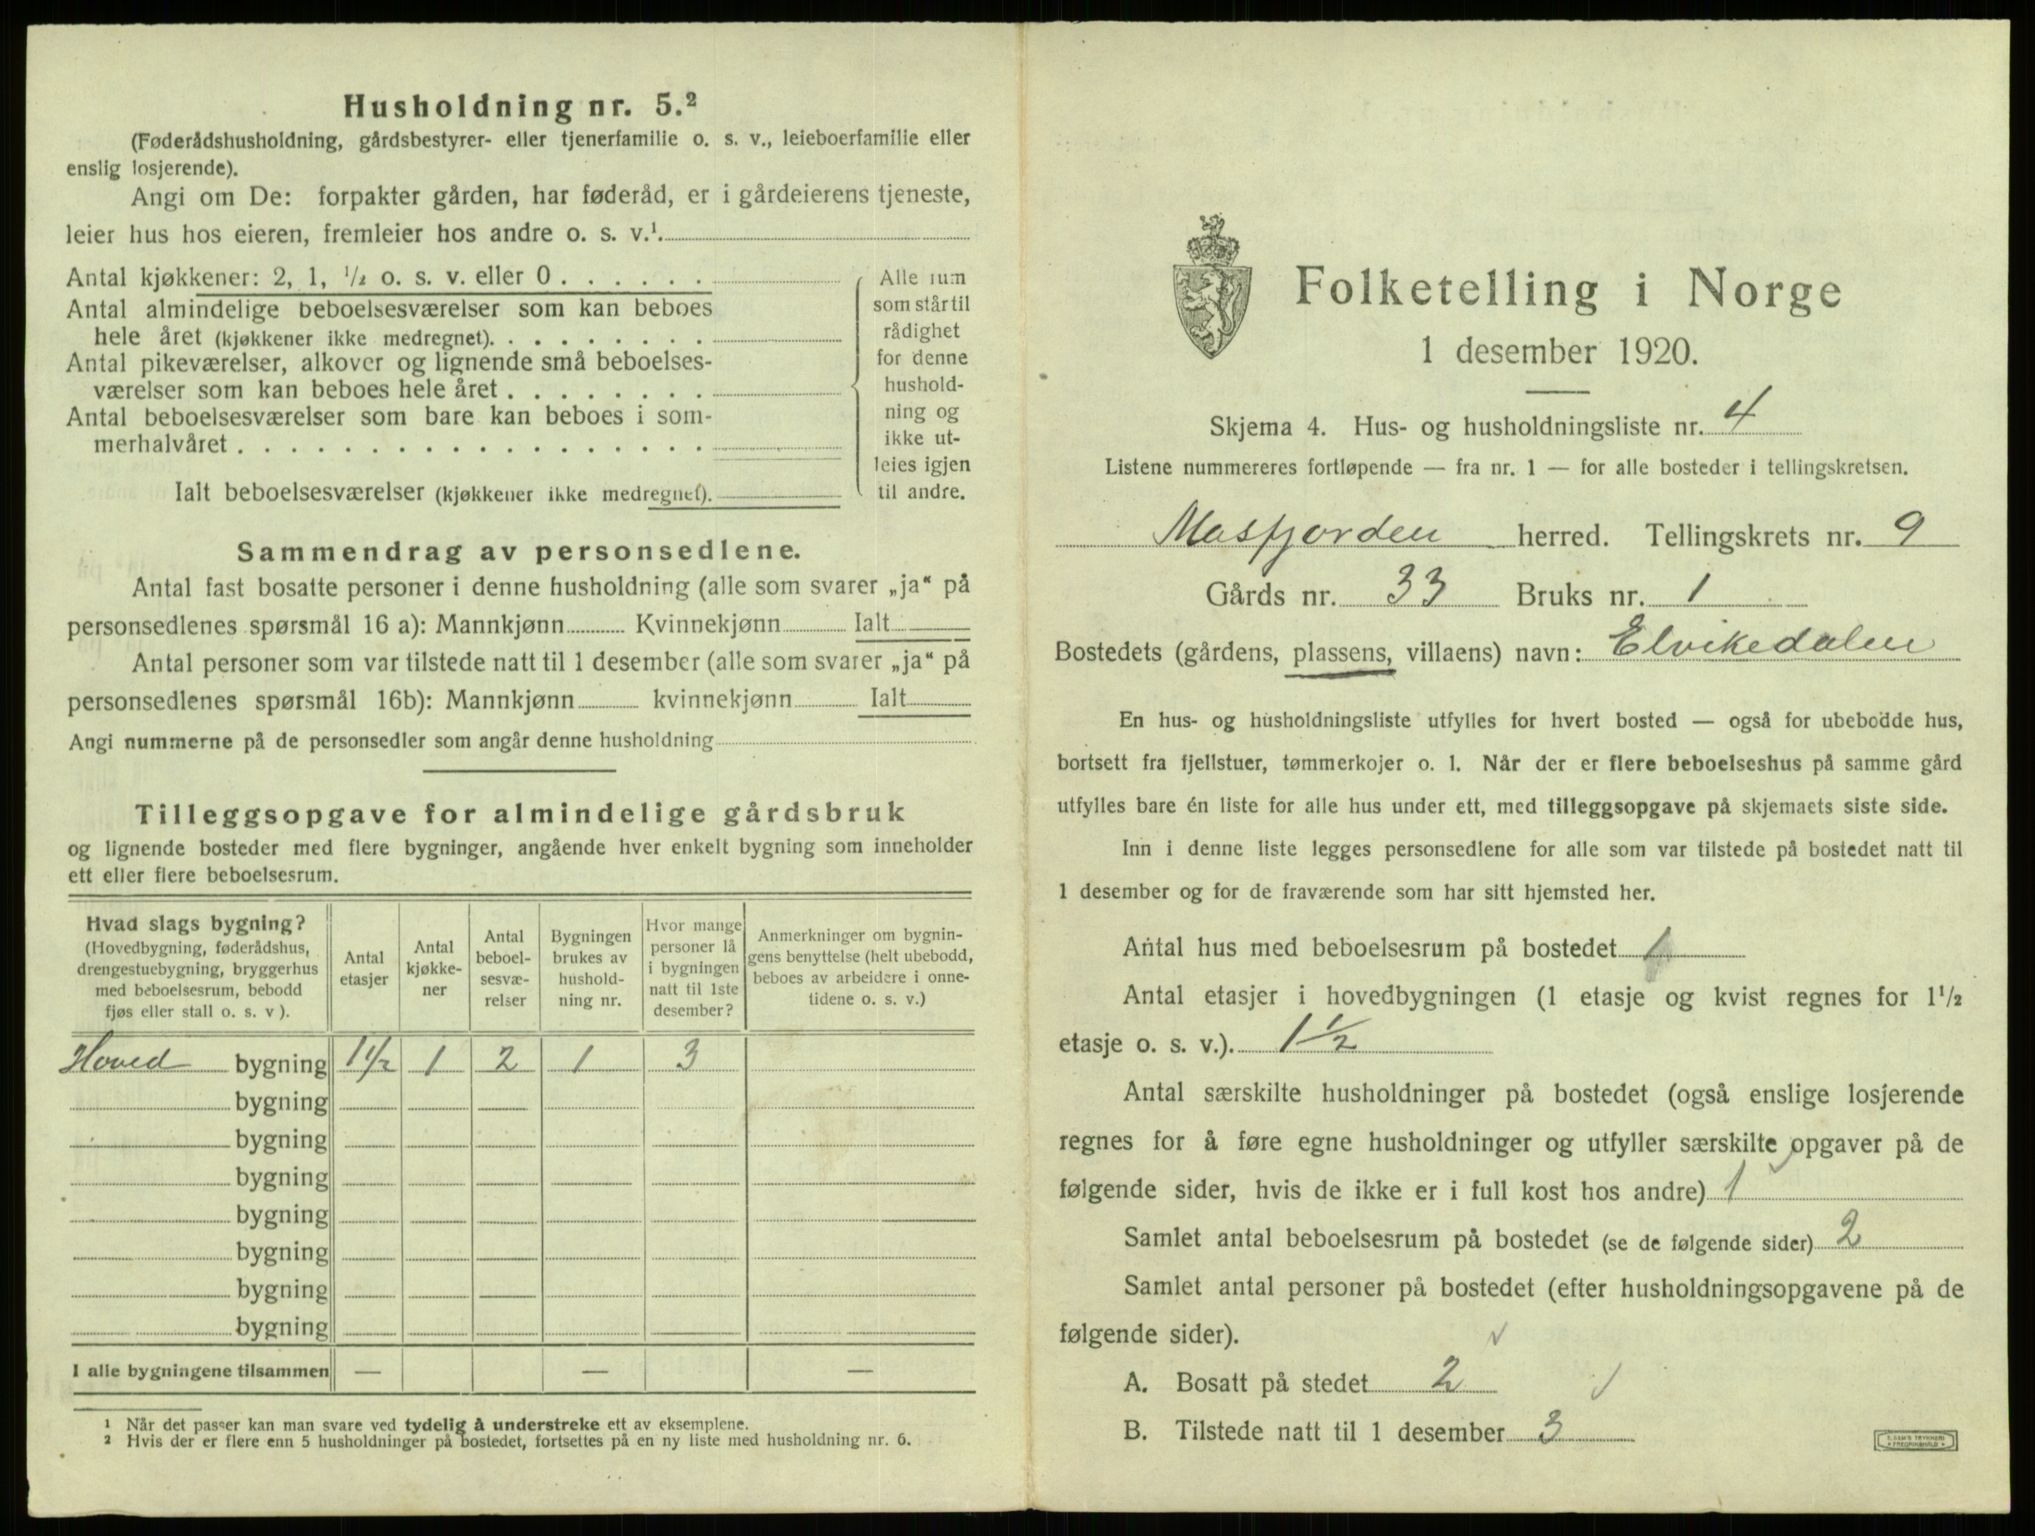 Husholdning nr. 5.²
(Føderådshusholdning, gårdsbestyrer- eller tjenerfamilie o. s. v., leieboerfamilie eller
enslig losjerende).
Angi om De: forpakter gården, har føderåd, er i gårdeierens tjeneste,
leier hus hos eieren, fremleier hos andre o. s. v.¹
Antal kjøkkener: 2, 1, ½ o. s. v. eller 0 . . . . . .
Antal almindelige beboelsesværelser som kan beboes
hele året (kjøkkener ikke medregnet). . . . . . . . .
Antal pikeværelser, alkover og lignende små beboelses-
værelser som kan beboes hele året . . . . . . . .
Antal beboelsesværelser som bare kan beboes i som-
merhalvåret . . . . . . . . . . . . . . . . . .
Ialt beboelsesværelser (kjøkkener ikke medregnet).
Alle rum
som står til
rådighet
for denne
hushold-
ning og
ikke ut-
leies igjen
til andre.
Sammendrag av personsedlene.
Antal fast bosatte personer i denne husholdning (alle som svarer „ja“ på
personsedlenes spørsmål 16 a): Mannkjønn Kvinnekjønn Ialt
Antal personer som var tilstede natt til 1 desember (alle som svarer „ja“ på
personsedlenes spørsmål 16b): Mannkjønn kvinnekjønn Ialt
Angi nummerne på de personsedler som angår denne husholdning
Tilleggsopgave for almindelige gårdsbruk
og lignende bosteder med flere bygninger, angående hver enkelt bygning som inneholder
ett eller flere beboelsesrum.
Hvad slags bygning?
(Hovedbygning, føderådshus,
drengestuebygning, bryggerhus
med beboelsesrum, bebodd
fjøs eller stall o. s. v ).
Antal
etasjer
Antal
kjøkke-
ner
Antal
beboel-
sesvæ-
relser
Bygningen
brukes av
hushold-
ning nr.
Hvor mange
personer lå
i bygningen
natt til 1ste
desember?
Anmerkninger om bygnin-
gens benyttelse (helt ubebodd,
beboes av arbeidere i onne-
tidene o. s. v.)
Hoved bygning 1½ 1 2 1 3
bygning
bygning
bygning
bygning
bygning
bygning
bygning
I alle bygningene tilsammen — — —
¹ Når det passer kan man svare ved tydelig å understreke ett av eksemplene.
² Hvis der er flere enn 5 husholdninger på bostedet, fortsettes på en ny liste med husholdning nr. 6.
Folketelling i Norge
1 desember 1920.
Skjema 4. Hus- og husholdningsliste nr. 4
Listene nummereres fortløpende — fra nr. 1 — for alle bosteder i tellingskretsen.
Masfjorden herred. Tellingskrets nr. 9
Gårds nr. 33 Bruks nr. 1
Bostedets (gårdens, plassens, villaens) navn: Elvikedalen
En hus- og husholdningsliste utfylles for hvert bosted — også for ubebodde hus,
bortsett fra fjellstuer, tømmerkojer o. l. Når der er flere beboelseshus på samme gård
utfylles bare én liste for alle hus under ett, med tilleggsopgave på skjemaets siste side.
Inn i denne liste legges personsedlene for alle som var tilstede på bostedet natt til
1 desember og for de fraværende som har sitt hjemsted her.
Antal hus med beboelsesrum på bostedet 1
Antal etasjer i hovedbygningen (1 etasje og kvist regnes for 1½
etasje o. s. v.). 1½
Antal særskilte husholdninger på bostedet (også enslige losjerende
regnes for å føre egne husholdninger og utfyller særskilte opgaver på de
følgende sider, hvis de ikke er i full kost hos andre) 1
Samlet antal beboelsesrum på bostedet (se de følgende sider) 2
Samlet antal personer på bostedet (efter husholdningsopgavene på de
følgende sider).
A. Bosatt på stedet 2
B. Tilstede natt til 1 desember 3